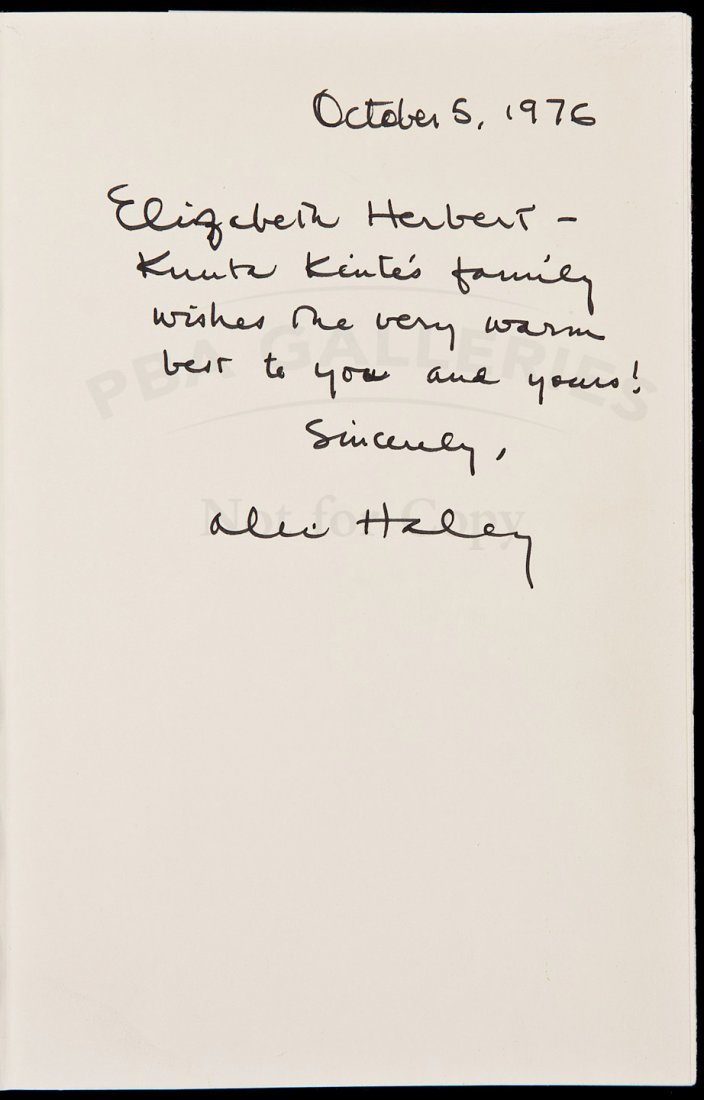 October 5, 1976
Elizabeth Herbert -
Kunta Kinte's family
wishes the very warm
best to you and yours!
PBA GALLERIES
Sincerely,
Not for Copy
Alex Haley